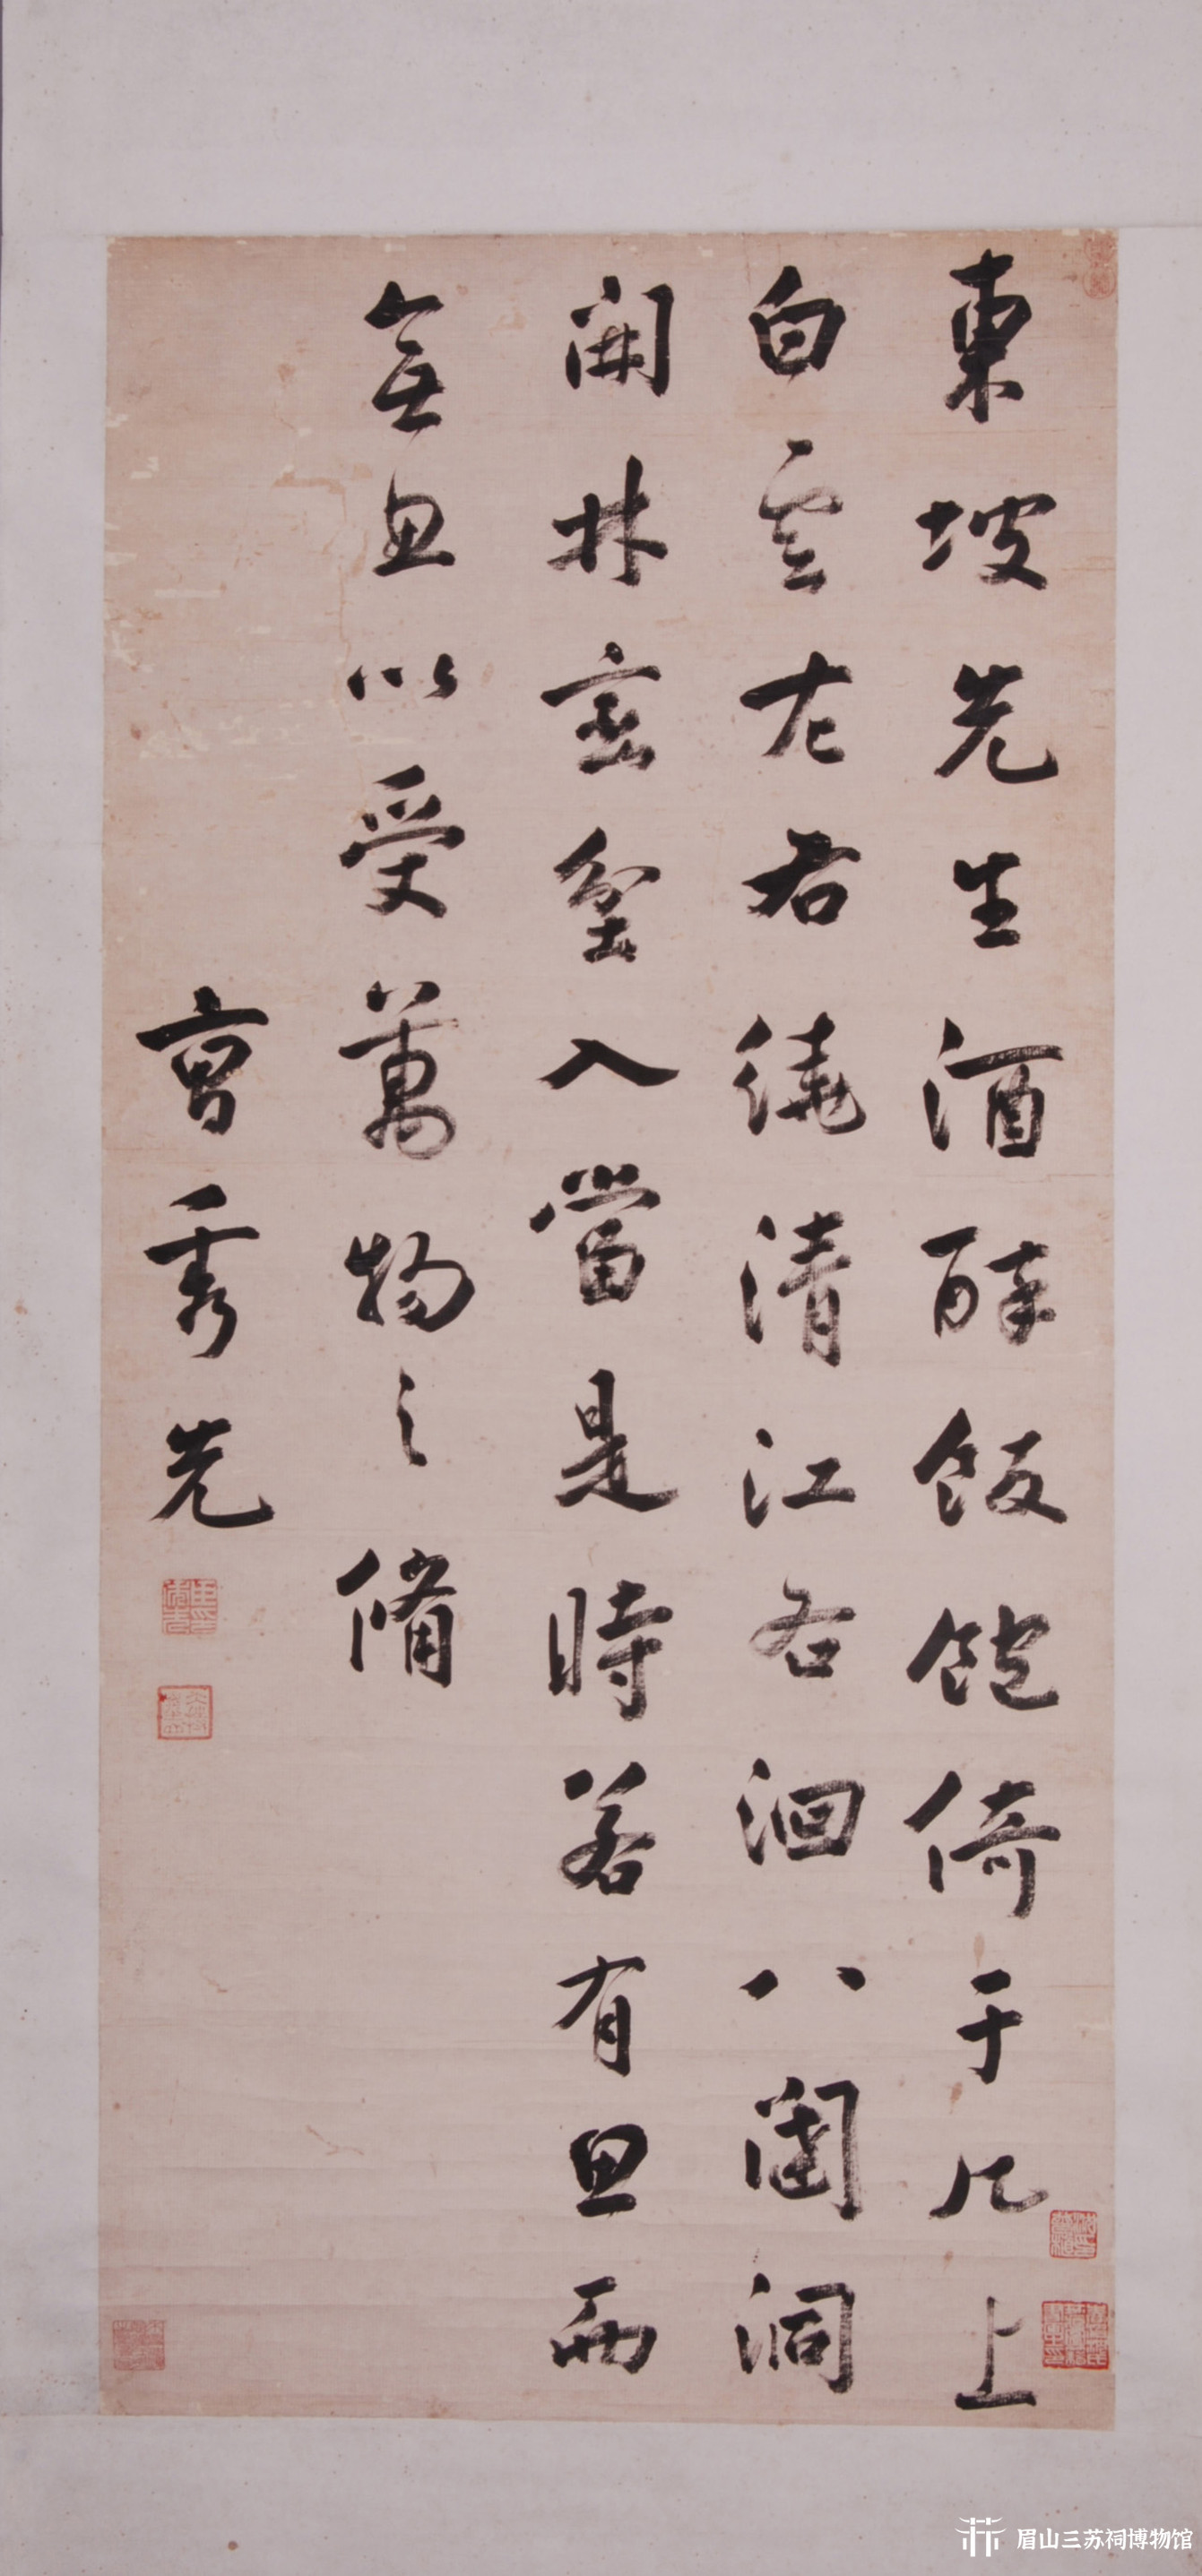 東坡先生酒醉飯飽倚于几上
白雲左右繞清江右洄八闥洞
開林巒岔入當是時若有思而
無思以受萬物之備
曹秀先
眉山三苏祠博物馆